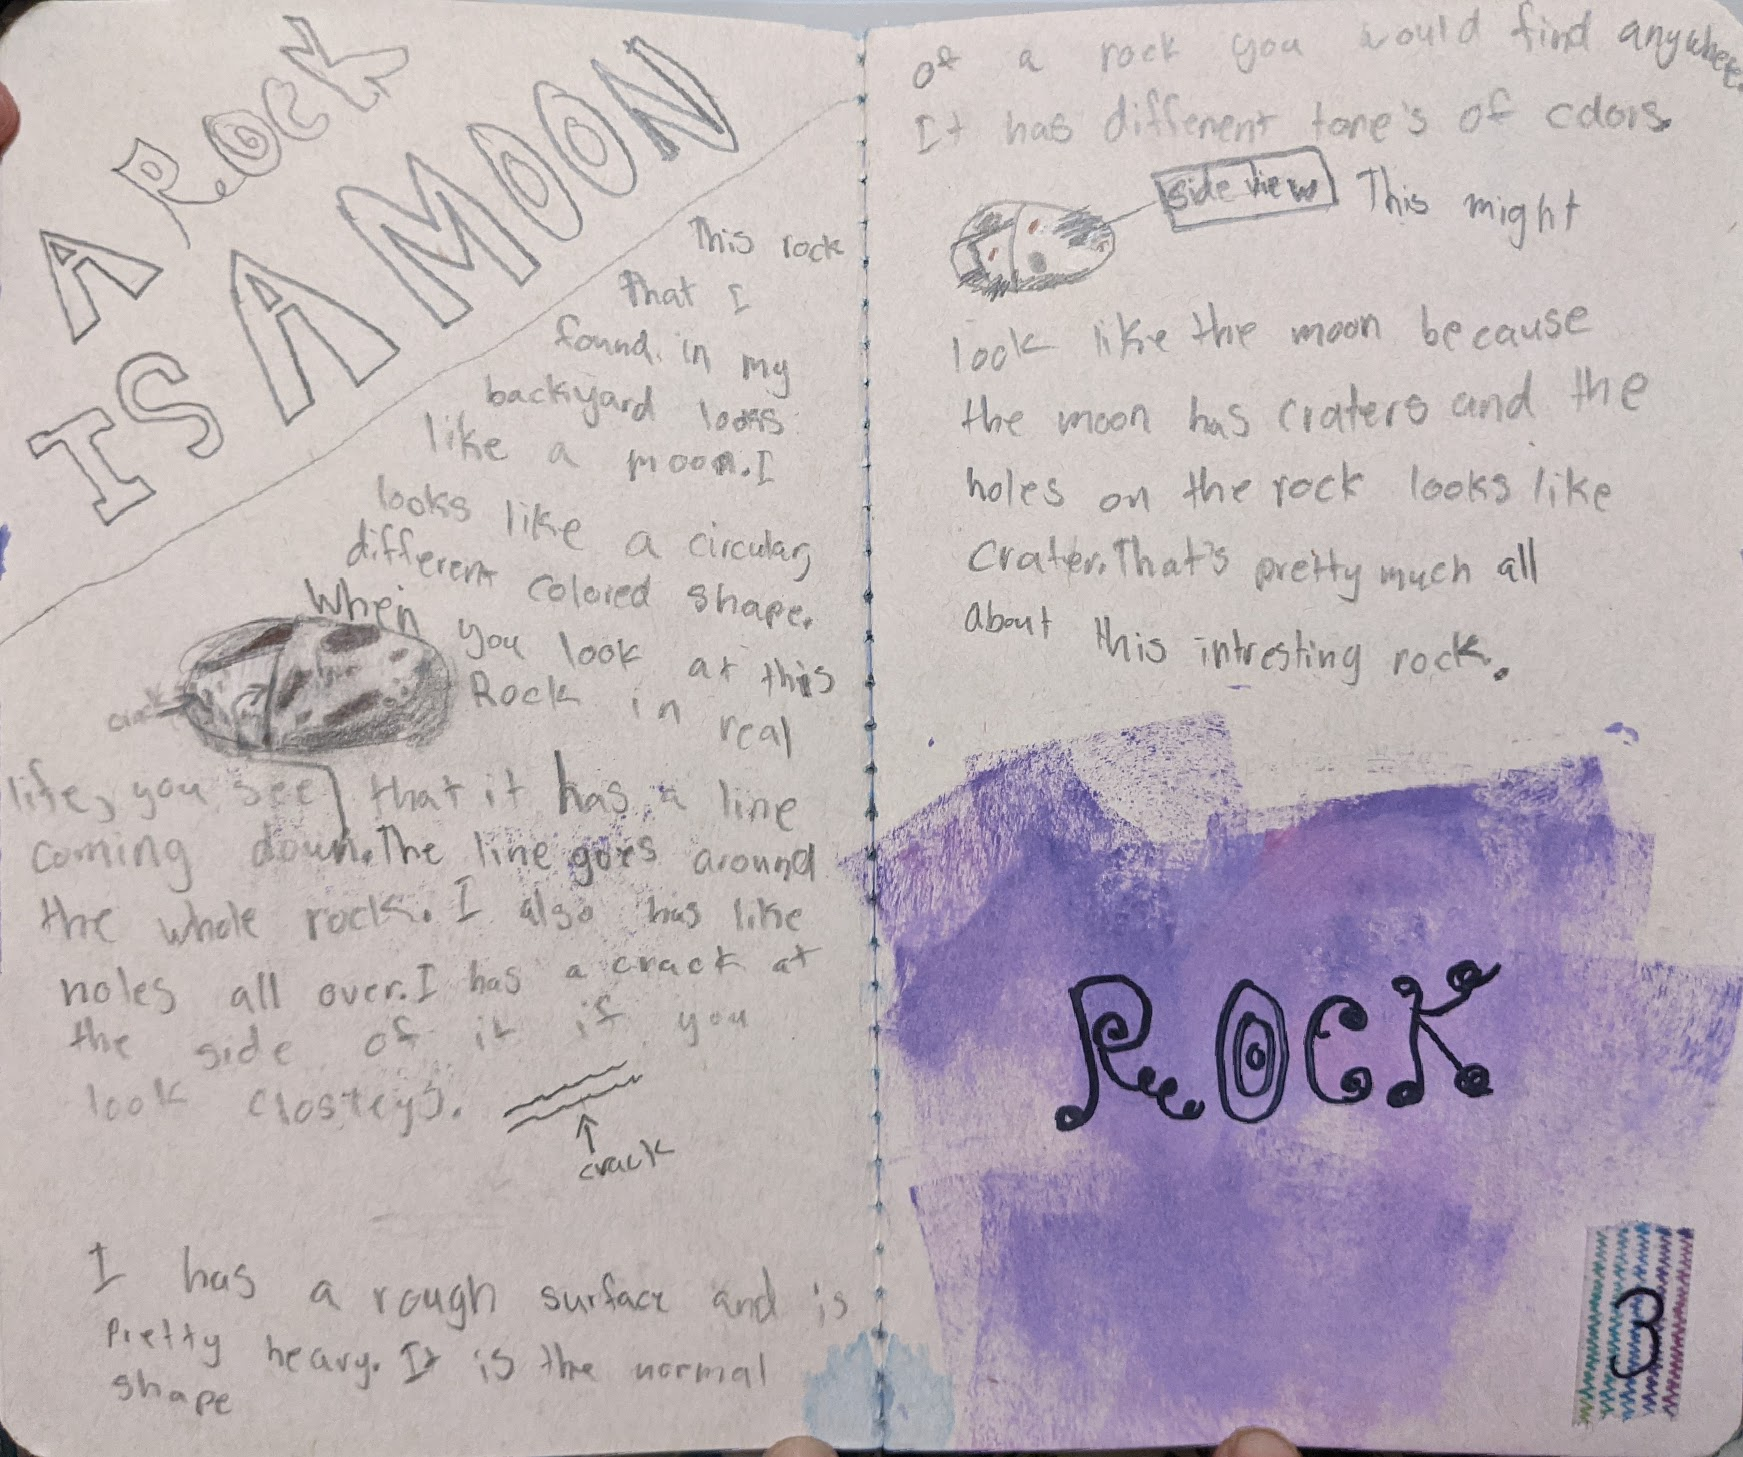 A ROCK
IS A MOON
This rock
that I
found in my
backyard looks
like a moon. I
looks like a circular,
different colored shape.
When
you look at this
Rock in real
crack
life, you see that it has a line
coming down. The line goes around
the whole rock. I also has like
holes all over. I has a crack at
the side of it if you
look closleys.
crack
I has a rough surface and is
pretty heavy. It is the normal
shape
of a rock you would find anywhere.
It has different tone's of colors.
side view
This might
look like the moon because
the moon has craters and the
holes on the rock looks like
crater. That's pretty much all
about this intresting rock.
ROCK
3